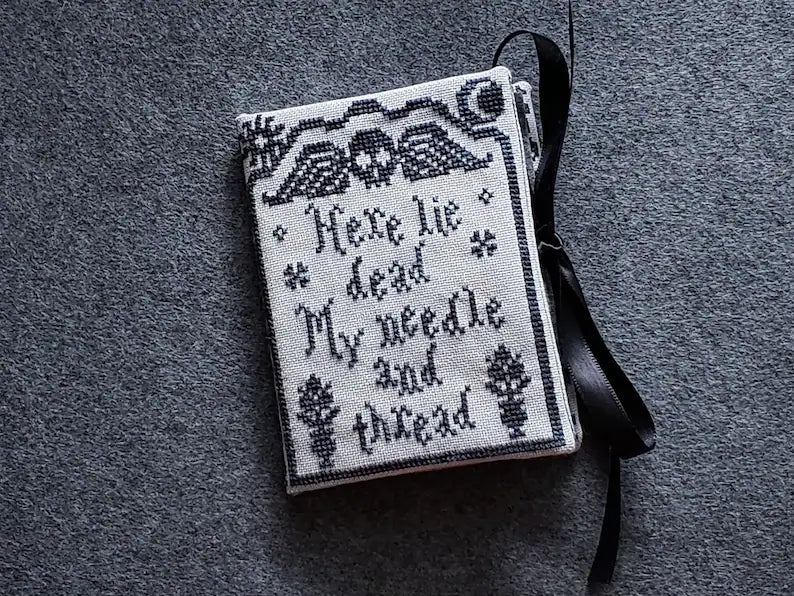 Here lie
dead
My needle
and
thread